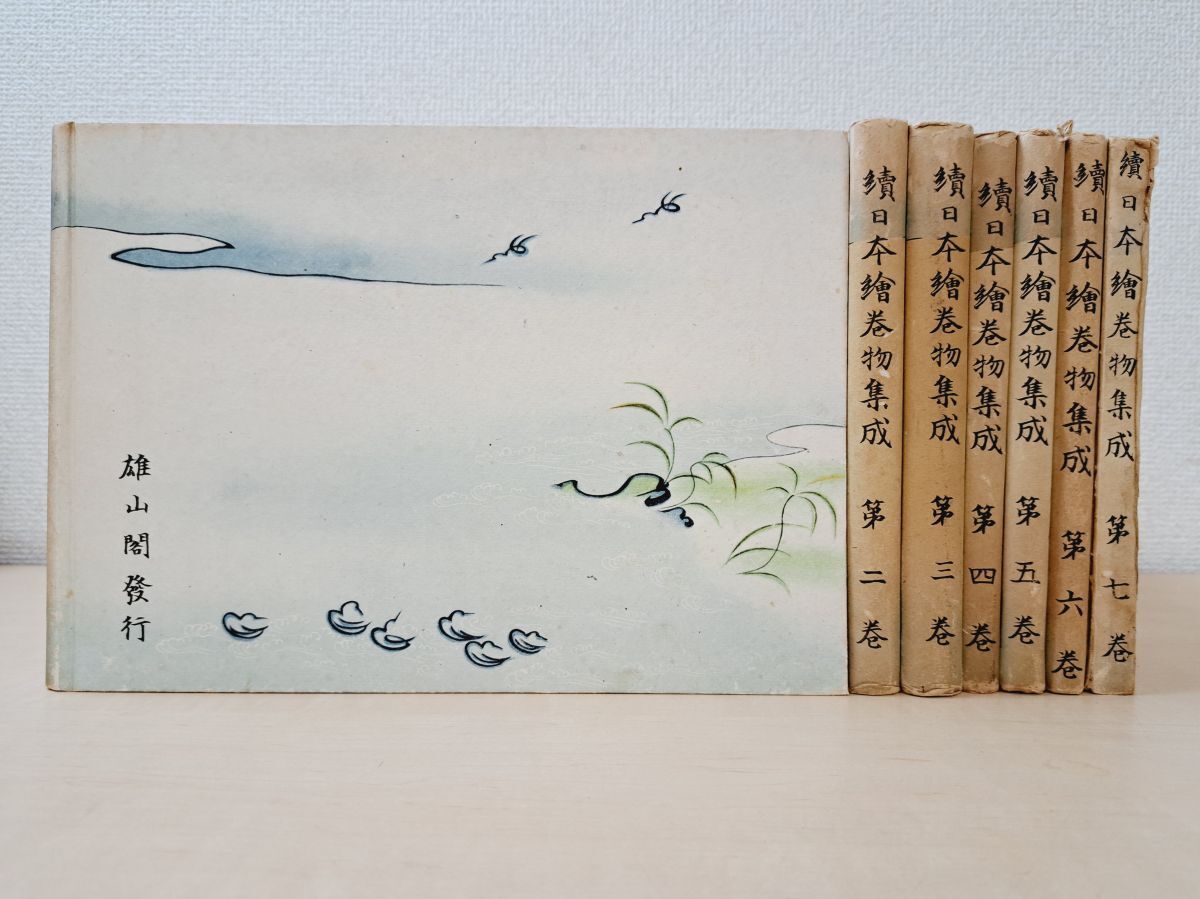 雄山閣發行
續日本繪巻物集成 第二巻
續日本繪巻物集成 第三巻
續日本繪巻物集成 第四巻
續日本繪巻物集成 第五巻
續日本繪巻物集成 第六巻
續日本繪巻物集成 第七巻